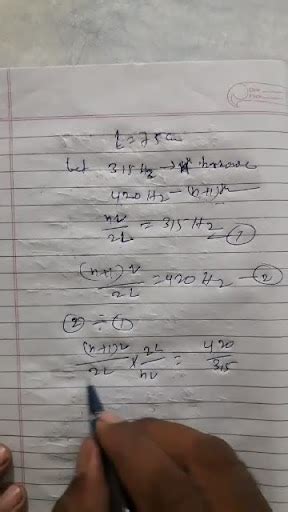 L = 75 cm
let 315 Hz → nth harmonic
420 Hz - (n+1)th
nv/2L = 315 Hz - ①
(n+1)v/2L = 420 Hz - ②
② ÷ ①
(n+1)v/2L × 2L/nv = 420/315